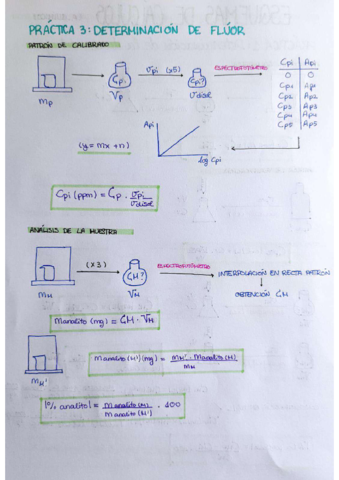 PRÁCTICA 3: DETERMINACIÓN DE FLÚOR
PATRÓN DE CALIBRADO
mp
Cp
Vp
Vpi (x5)
Cpi?
Vdisol
ELECTROFOTÓMETRO
Cpi Api
0 0
Cp1 Ap1
Cp2 Ap2
Cp3 Ap3
Cp4 Ap4
Cp5 Ap5
Api
log Cpi
(y = mx + n)
Cpi (ppm) = Cp · Vpi / Vdisol
ANÁLISIS DE LA MUESTRA
mM
(x3)
CM?
VM
INTERPOLACIÓN EN RECTA PATRÓN
OBTENCIÓN CM
manalito (mg) = CM · VM
mM'
manalito (M') (mg) = mM' · manalito (M) / mM
|% analito| = manalito (M) / manalito (M') · 100